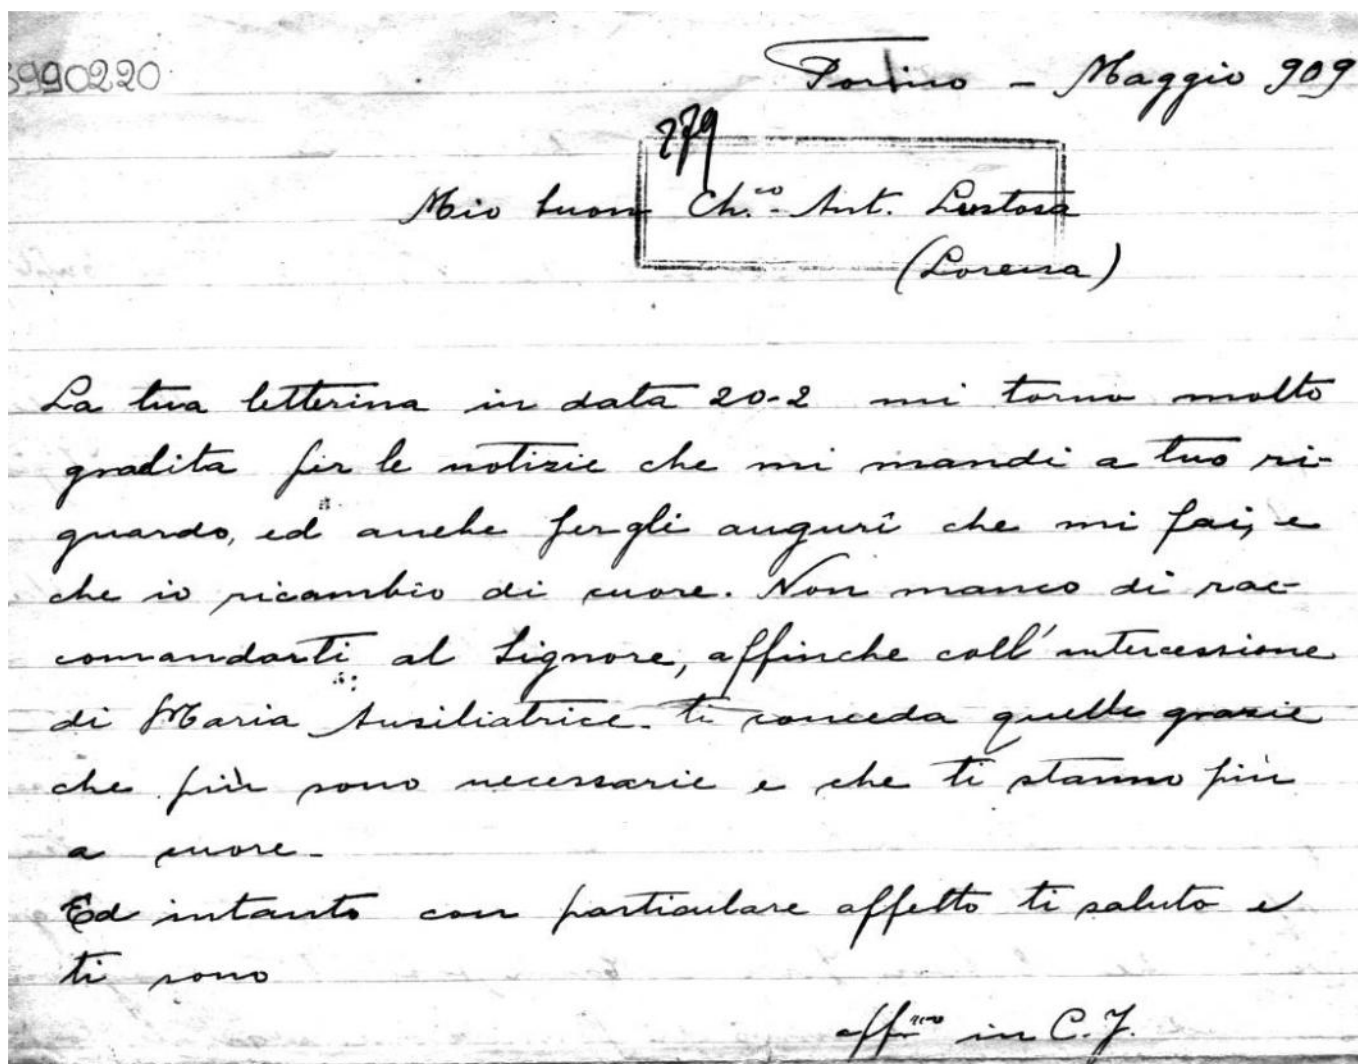 3990220
Torino - Maggio 909
279
Mio buon Ch.co Ant. Lustosa
(Lorena)
La tua letterina in data 20-2 mi torno molto
gradita per le notizie che mi mandi a tuo ri-
guardo, ed anche per gli augurî che mi fai, e
che io ricambio di cuore. Non manco di rac-
comandarti al Signore, affinche coll' intercessione
di Maria Ausiliatrice ti conceda quelle grazie
che più sono necessarie e che ti stanno più
a cuore.
Ed intanto con particulare affetto ti saluto e
ti sono
aff.mo in C. J.